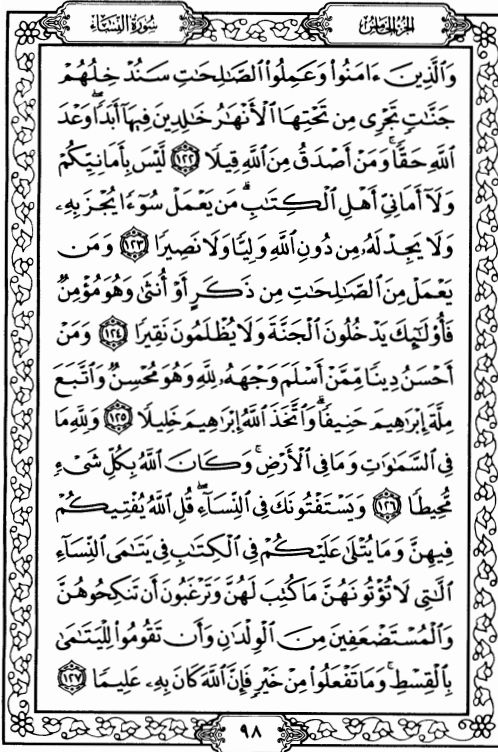 الجزء الخامس
سورة النساء
وَالَّذِينَ ءَامَنُوا۟ وَعَمِلُوا۟ الصَّـٰلِحَـٰتِ سَنُدْخِلُهُمْ
جَنَّـٰتٍ تَجْرِى مِن تَحْتِهَا الْأَنْهَـٰرُ خَـٰلِدِينَ فِيهَآ أَبَدًا ۖ وَعْدَ
اللَّهِ حَقًّا ۚ وَمَنْ أَصْدَقُ مِنَ اللَّهِ قِيلًا ١٢٢ لَّيْسَ بِأَمَانِيِّكُمْ
وَلَآ أَمَانِىِّ أَهْلِ الْكِتَـٰبِ ۗ مَن يَعْمَلْ سُوٓءًا يُجْزَ بِهِۦ
وَلَا يَجِدْ لَهُۥ مِن دُونِ اللَّهِ وَلِيًّا وَلَا نَصِيرًا ١٢٣ وَمَن
يَعْمَلْ مِنَ الصَّـٰلِحَـٰتِ مِن ذَكَرٍ أَوْ أُنثَىٰ وَهُوَ مُؤْمِنٌ
فَأُو۟لَـٰٓئِكَ يَدْخُلُونَ الْجَنَّةَ وَلَا يُظْلَمُونَ نَقِيرًا ١٢٤ وَمَنْ
أَحْسَنُ دِينًا مِّمَّنْ أَسْلَمَ وَجْهَهُۥ لِلَّهِ وَهُوَ مُحْسِنٌ وَاتَّبَعَ
مِلَّةَ إِبْرَٰهِيمَ حَنِيفًا ۗ وَاتَّخَذَ اللَّهُ إِبْرَٰهِيمَ خَلِيلًا ١٢٥ وَلِلَّهِ مَا
فِى السَّمَـٰوَٰتِ وَمَا فِى الْأَرْضِ ۚ وَكَانَ اللَّهُ بِكُلِّ شَىْءٍ
مُّحِيطًا ١٢٦ وَيَسْتَفْتُونَكَ فِى النِّسَآءِ ۖ قُلِ اللَّهُ يُفْتِيكُمْ
فِيهِنَّ وَمَا يُتْلَىٰ عَلَيْكُمْ فِى الْكِتَـٰبِ فِى يَتَـٰمَى النِّسَآءِ
الَّـٰتِى لَا تُؤْتُونَهُنَّ مَا كُتِبَ لَهُنَّ وَتَرْغَبُونَ أَن تَنكِحُوهُنَّ
وَالْمُسْتَضْعَفِينَ مِنَ الْوِلْدَٰنِ وَأَن تَقُومُوا۟ لِلْيَتَـٰمَىٰ
بِالْقِسْطِ ۚ وَمَا تَفْعَلُوا۟ مِنْ خَيْرٍ فَإِنَّ اللَّهَ كَانَ بِهِۦ عَلِيمًا ١٢٧
٩٨